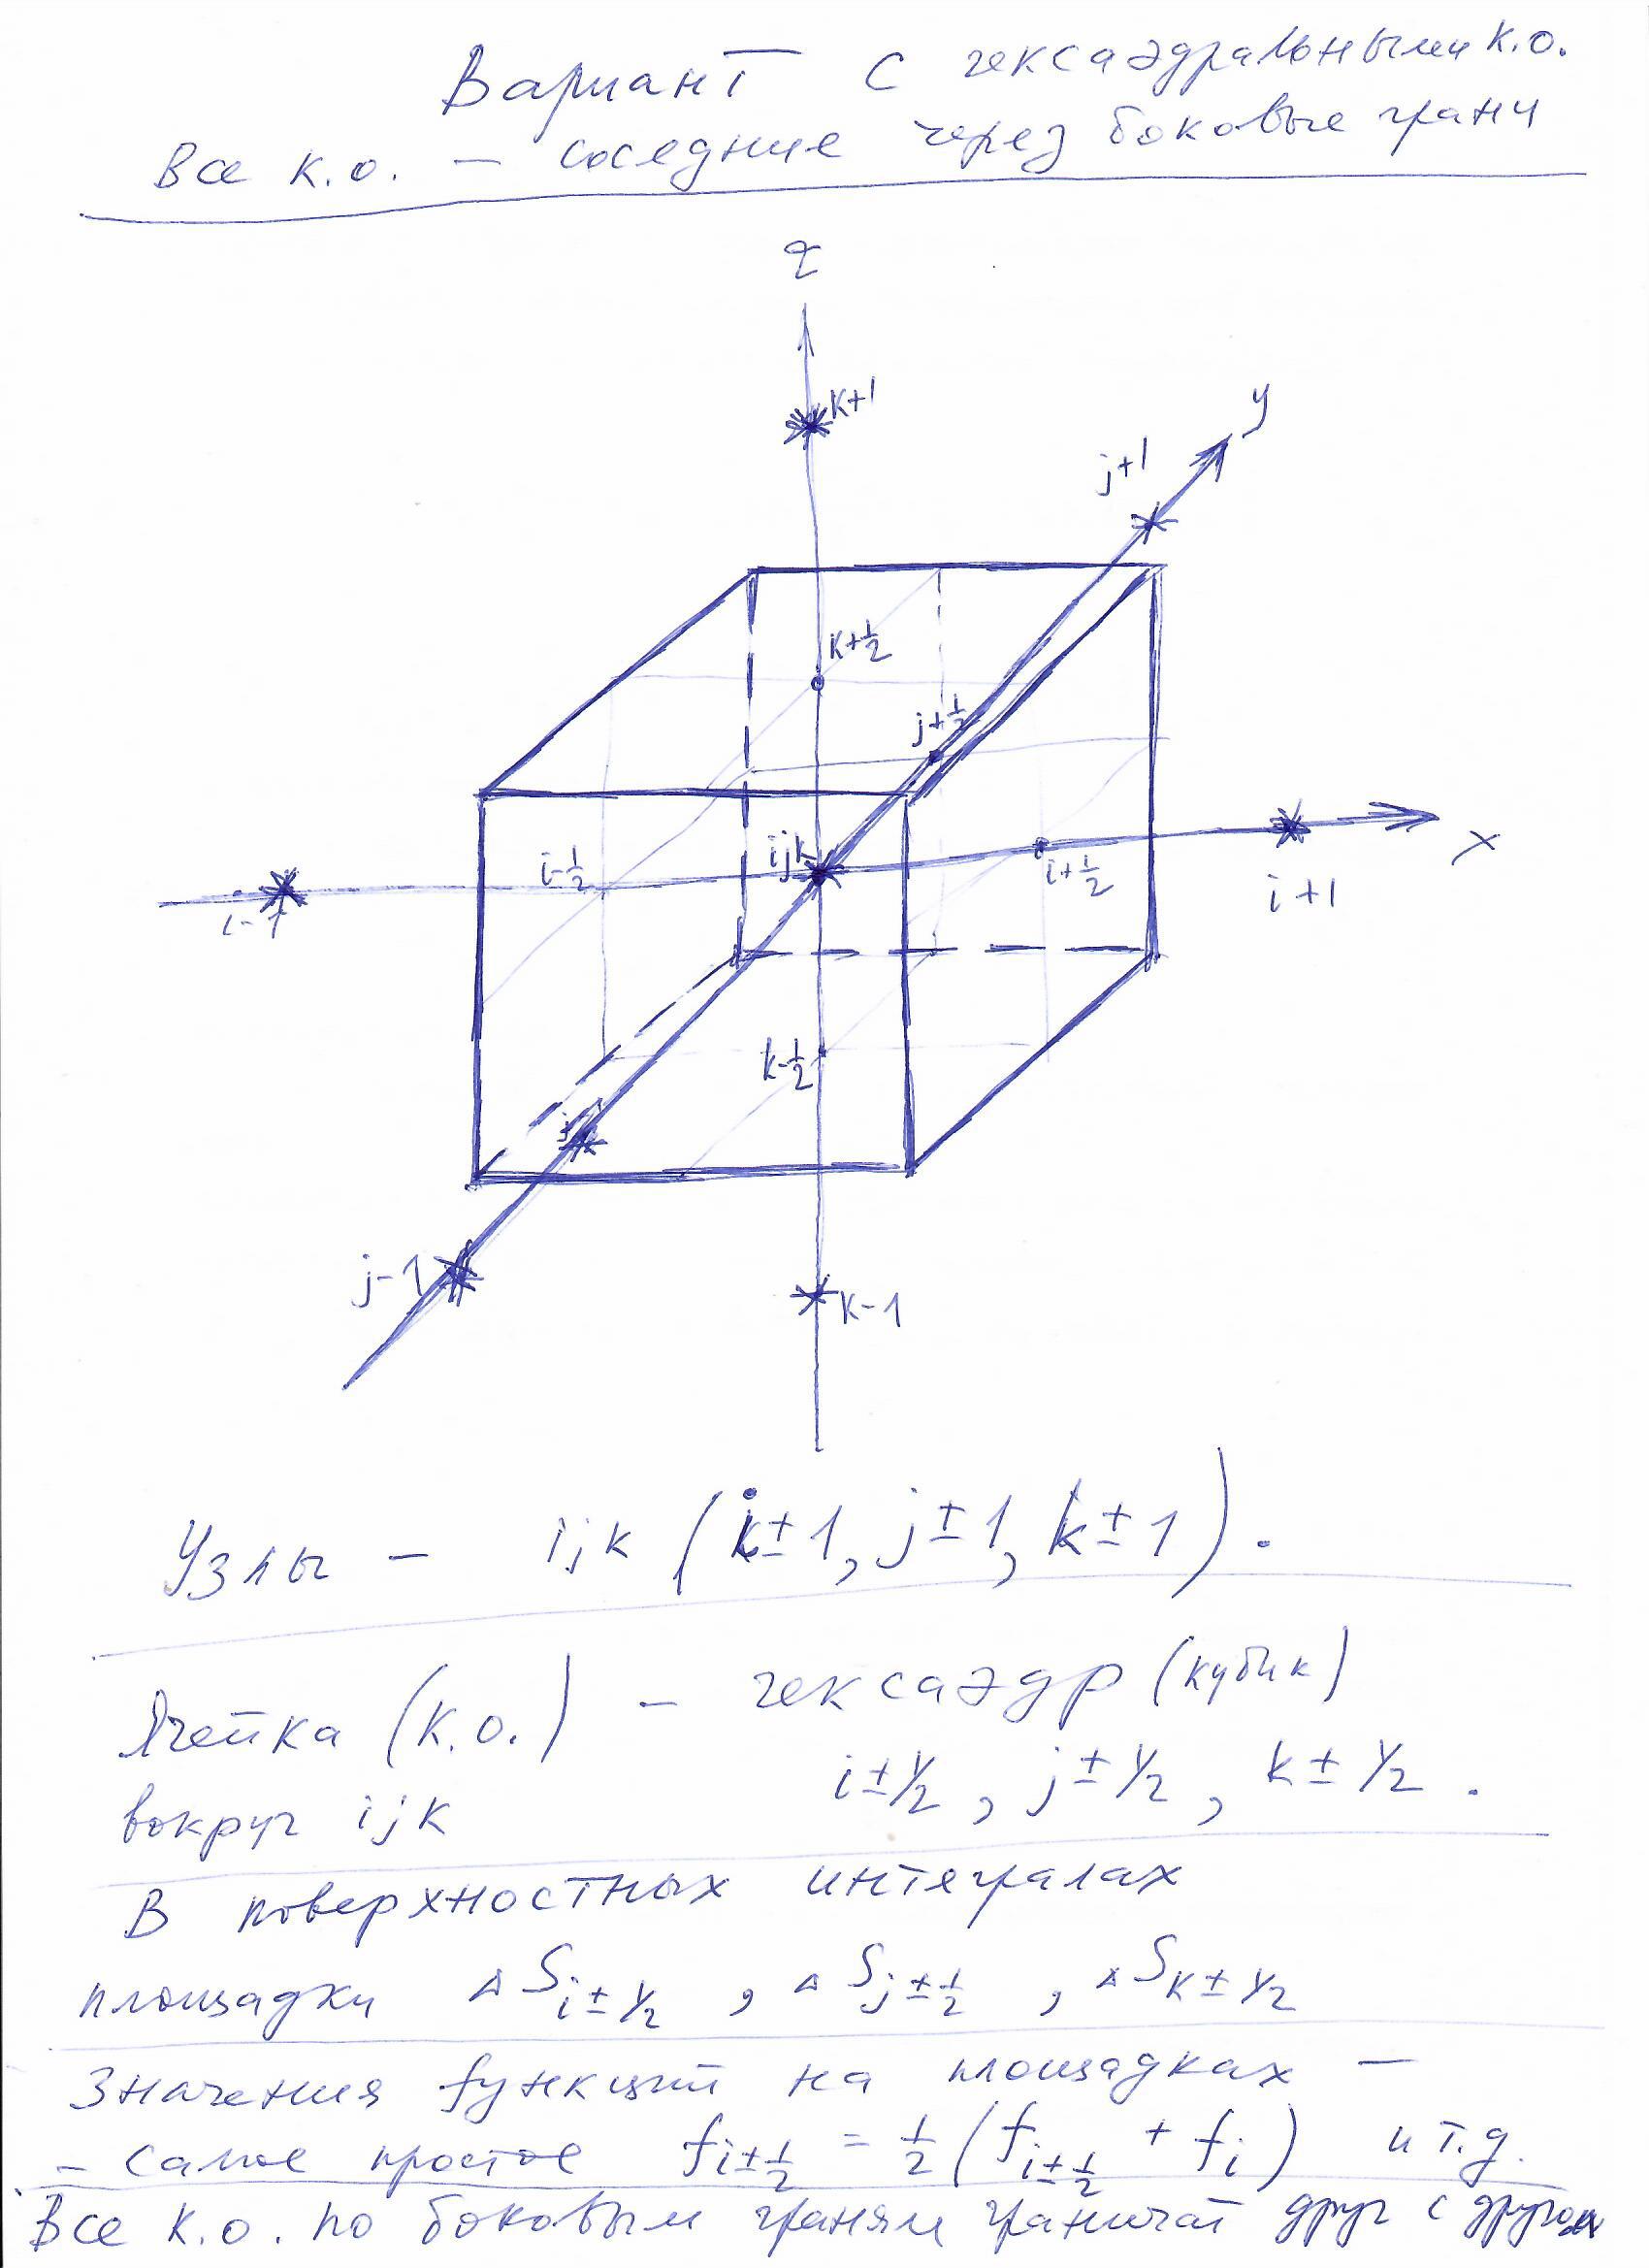 Вариант с гексаэдральными к.о.
Все к.о. — соседние через боковые грани
z
k+1
y
j+1
k+1/2
j+1/2
ijk
i-1/2
i+1/2
x
i-1
i+1
k-1/2
j-1
k-1
Узлы — ijk (i±1, j±1, k±1).
Ячейка (к.о.) — гексаэдр (кубик)
вокруг ijk i±1/2, j±1/2, k±1/2.
В поверхностных интегралах
площадки ΔS i±1/2, ΔS j±1/2, ΔS k±1/2
Значения функций на площадках —
— самое простое f i±1/2 = 1/2 (f i±1/2 + f i) и т.д.
Все к.о. по боковым граням граничат друг с другом